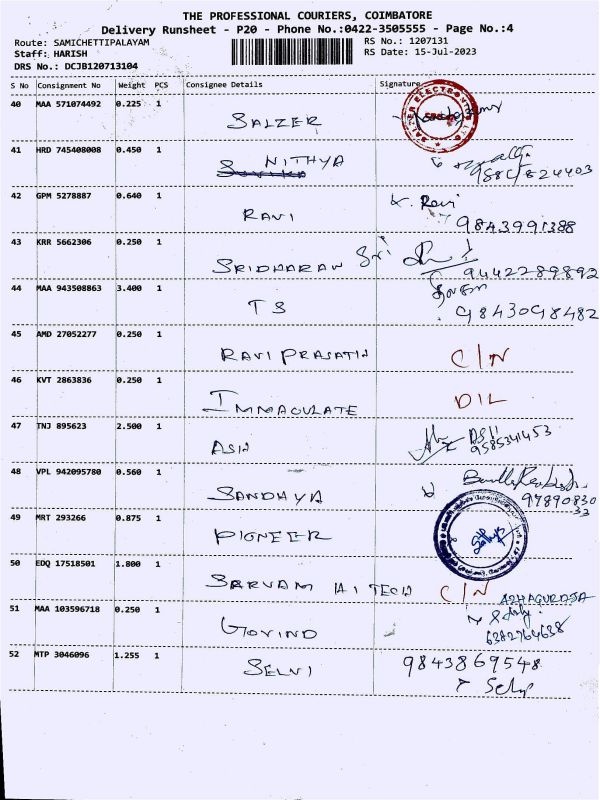 THE PROFESSIONAL COURIERS, COIMBATORE
Delivery Runsheet - P20 - Phone No.:0422-3505555 - Page No.:4
Route: SAMICHETTIPALAYAM
RS No.: 1207131
Staff: HARISH
RS Date: 15-Jul-2023
DRS No.: DCJB120713104
S No Consignment No Weight PCS Consignee Details Signature
40 MAA 571074492 0.225 1
SALZER
SALZER ELECTRONICS LTD
41 HRD 745408008 0.450 1
NITHYA
42 GPM 5278887 0.640 1
RAVI
K. Ravi
9843991388
43 KRR 5662306 0.250 1
SRIDHARAN Sri
9442289892
44 MAA 943508863 3.400 1
TS
9843098482
45 AMD 27052277 0.250 1
RAVI PRASATH C/N
46 KVT 2863836 0.250 1
IMMACULATE D/L
47 TNJ 895623 2.500 1
ASH
9585341453
48 VPL 942095780 0.560 1
SANDHYA
97890830
33
49 MRT 293266 0.875 1
PIONEER
50 EDQ 17518501 1.800 1
SARVAM HI TECH C/N
51 MAA 103596718 0.250 1
GOVIND
6382764638
52 MTP 3046096 1.255 1
SELVI
9843869548
Selvi